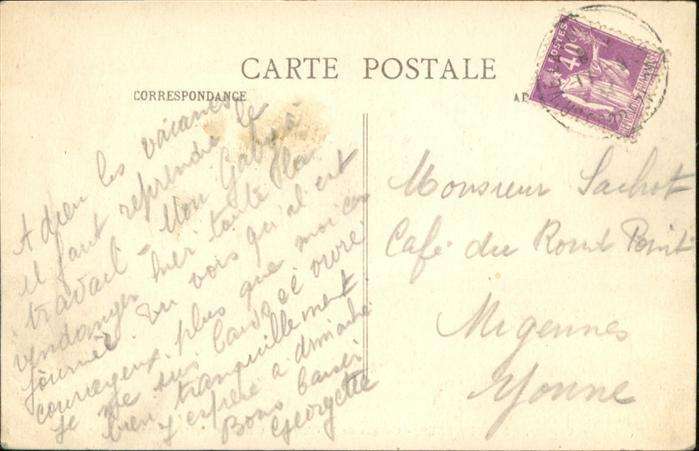 CARTE POSTALE
CORRESPONDANCE
POSTES
40
Adieu les vacances
il faut reprendre le
travail - Mon Gaby à
vendanger hier toute la
journée. Tu vois qu'il est
courageux plus que moi car
je me suis laissé vivre
bien tranquillement
J'espère a dimanche
Bons baisers
Georgette
Monsieur Sachot
Café du Rond Point
Migennes
Yonne